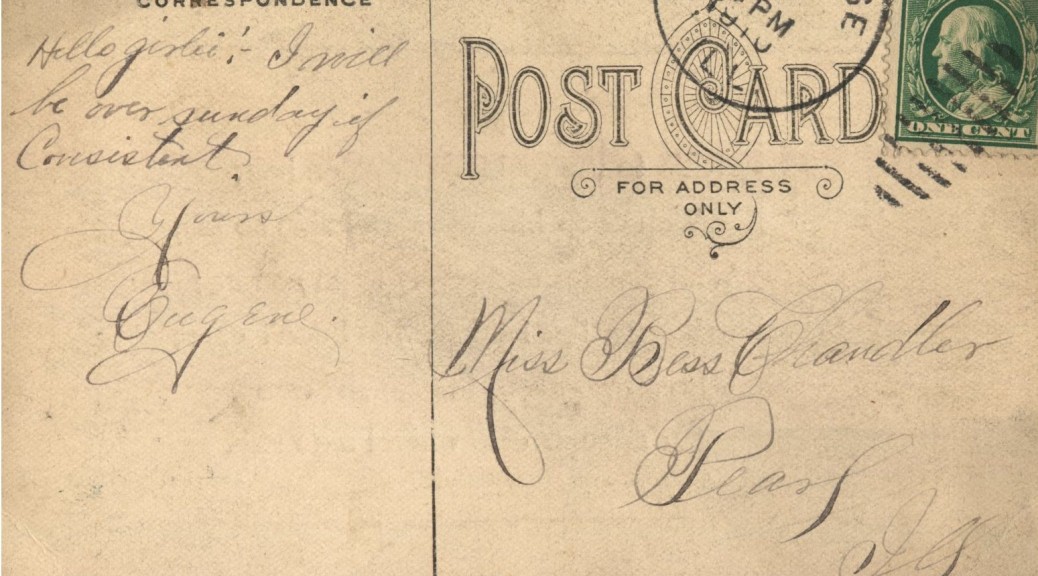 CORRESPONDENCE
Hello girlie:- I will
be over sunday if
Consistent.
Yours
Eugene.
POST CARD
FOR ADDRESS
ONLY
PM
1910
N.Y.
SE
ONE CENT
Miss Bess Chandler
Pearl
Ill